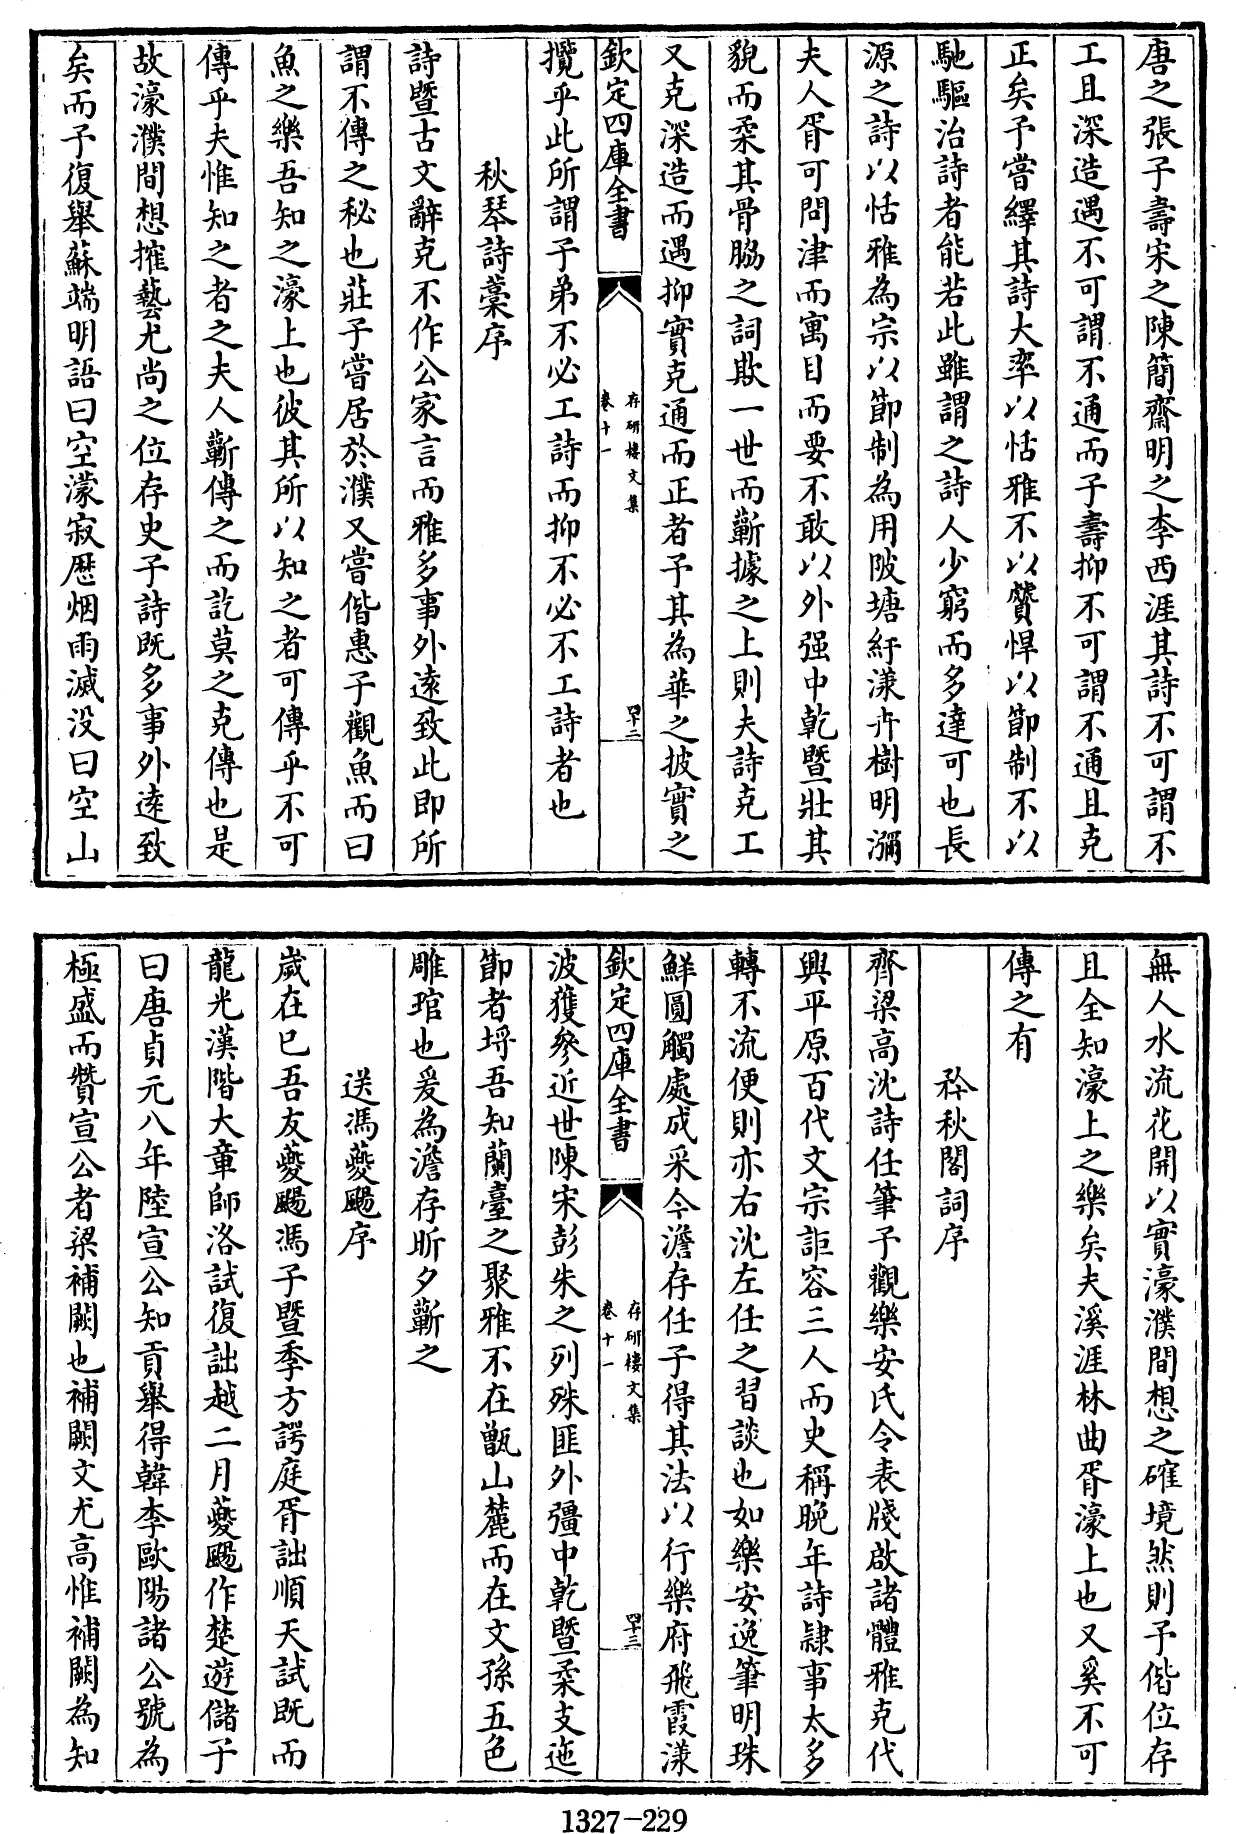 唐之張子壽宋之陳簡齋明之李西涯其詩不可謂不
工且深造遇不可謂不通而子壽抑不可謂不通且克
正矣予嘗繹其詩大率以恬雅不以贊悍以節制不以
馳驅治詩者能若此雖謂之詩人少窮而多達可也長
源之詩以恬雅為宗以節制為用陂塘紆漾卉樹明瀰
夫人胥可問津而寓目而要不敢以外强中乾暨壯其
貌而柔其骨脇之詞欺一世而蘄據之上則夫詩克工
又克深造而遇抑實克通而正者予其為華之披實之
欽定四庫全書
存研樓文集
卷十一
四十二
攬乎此所謂子弟不必工詩而抑不必不工詩者也
秋琴詩藁序
詩暨古文辭克不作公家言而雅多事外遠致此即所
謂不傳之秘也莊子嘗居於濮又嘗偕惠子觀魚而曰
魚之樂吾知之濠上也彼其所以知之者可傳乎不可
傳乎夫惟知之者之夫人蘄傳之而訖莫之克傳也是
故濠濮間想搉藝尤尚之位存史子詩既多事外遠致
矣而予復舉蘇端明語曰空濛寂歷烟雨滅没曰空山
無人水流花開以實濠濮間想之確境然則予偕位存
且全知濠上之樂矣夫溪涯林曲胥濠上也又奚不可
傳之有
矜秋閣詞序
齊梁高沈詩任筆予觀樂安氏令表牋啟諸體雅克代
興平原百代文宗詎容三人而史稱晚年詩隸事太多
轉不流便則亦右沈左任之習談也如樂安逸筆明珠
鮮圓觸處成采今澹存任子得其法以行樂府飛霞漾
欽定四庫全書
存研樓文集
卷十一
四十三
波獲參近世陳宋彭朱之列殊匪外彊中乾暨柔支迤
節者埒吾知蘭臺之聚雅不在甑山麓而在文孫五色
雕琯也爰為澹存昕夕蘄之
送馮夔颺序
歲在巳吾友夔颺馮子暨季方諤庭胥詘順天試既而
龍光漢階大章師洛試復詘越二月夔颺作楚遊儲子
曰唐貞元八年陸宣公知貢舉得韓李歐陽諸公號為
極盛而贊宣公者梁補闕也補闕文尤高惟補闕為知
1327-229